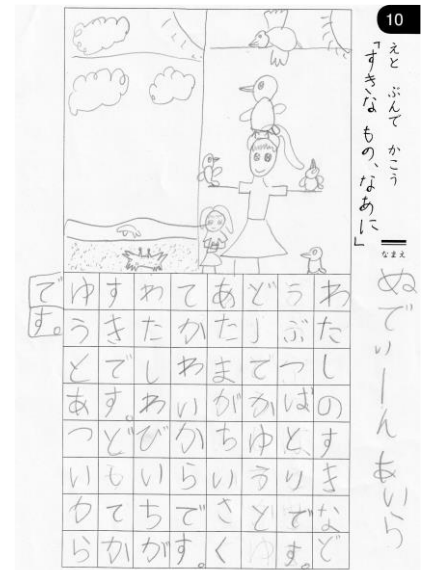 10
えと ぶんで かこう
「すきな もの、なあに」
なまえ
ぬでぃーん あいら
わたしのすきなど
うぶつばと、りです。
どしでかゆうとゆ
あたまがちいさく
てかわいからです。
わたしわびいちが
すきです。どもてか
ゆうとあついから
です。